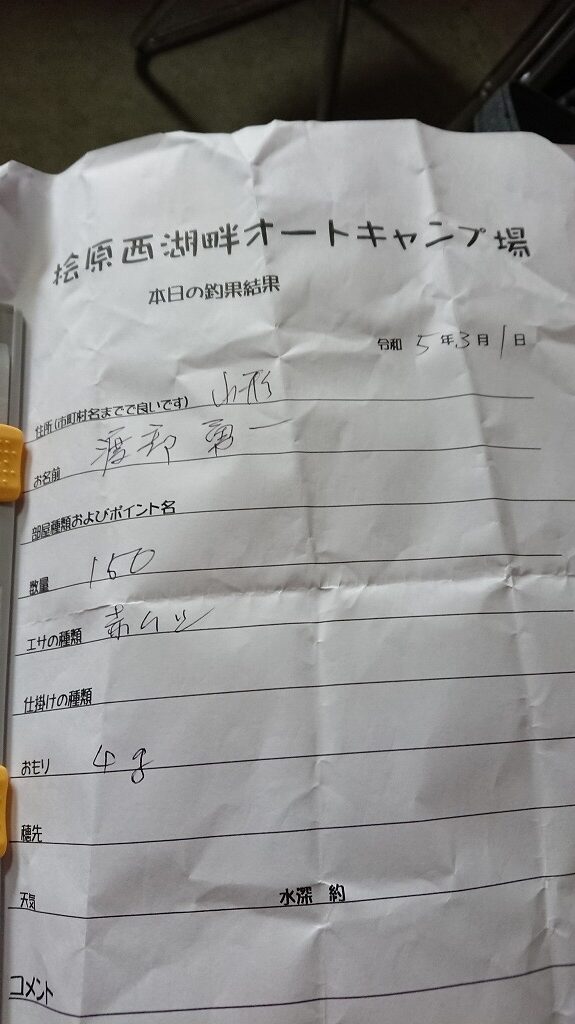 桧原西湖畔オートキャンプ場
本日の釣果結果
令和 5年3月1日
住所(市町村名までで良いです) 山形
お名前 渡部 勇一
部屋種類およびポイント名
数量 150
エサの種類 赤ムシ
仕掛けの種類
おもり 4g
穂先
天気 水深 約
コメント